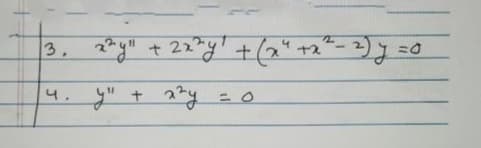 3. x²y" + 2x²y' + (x⁴ + x² - 2) y = 0
4. y" + x²y = 0